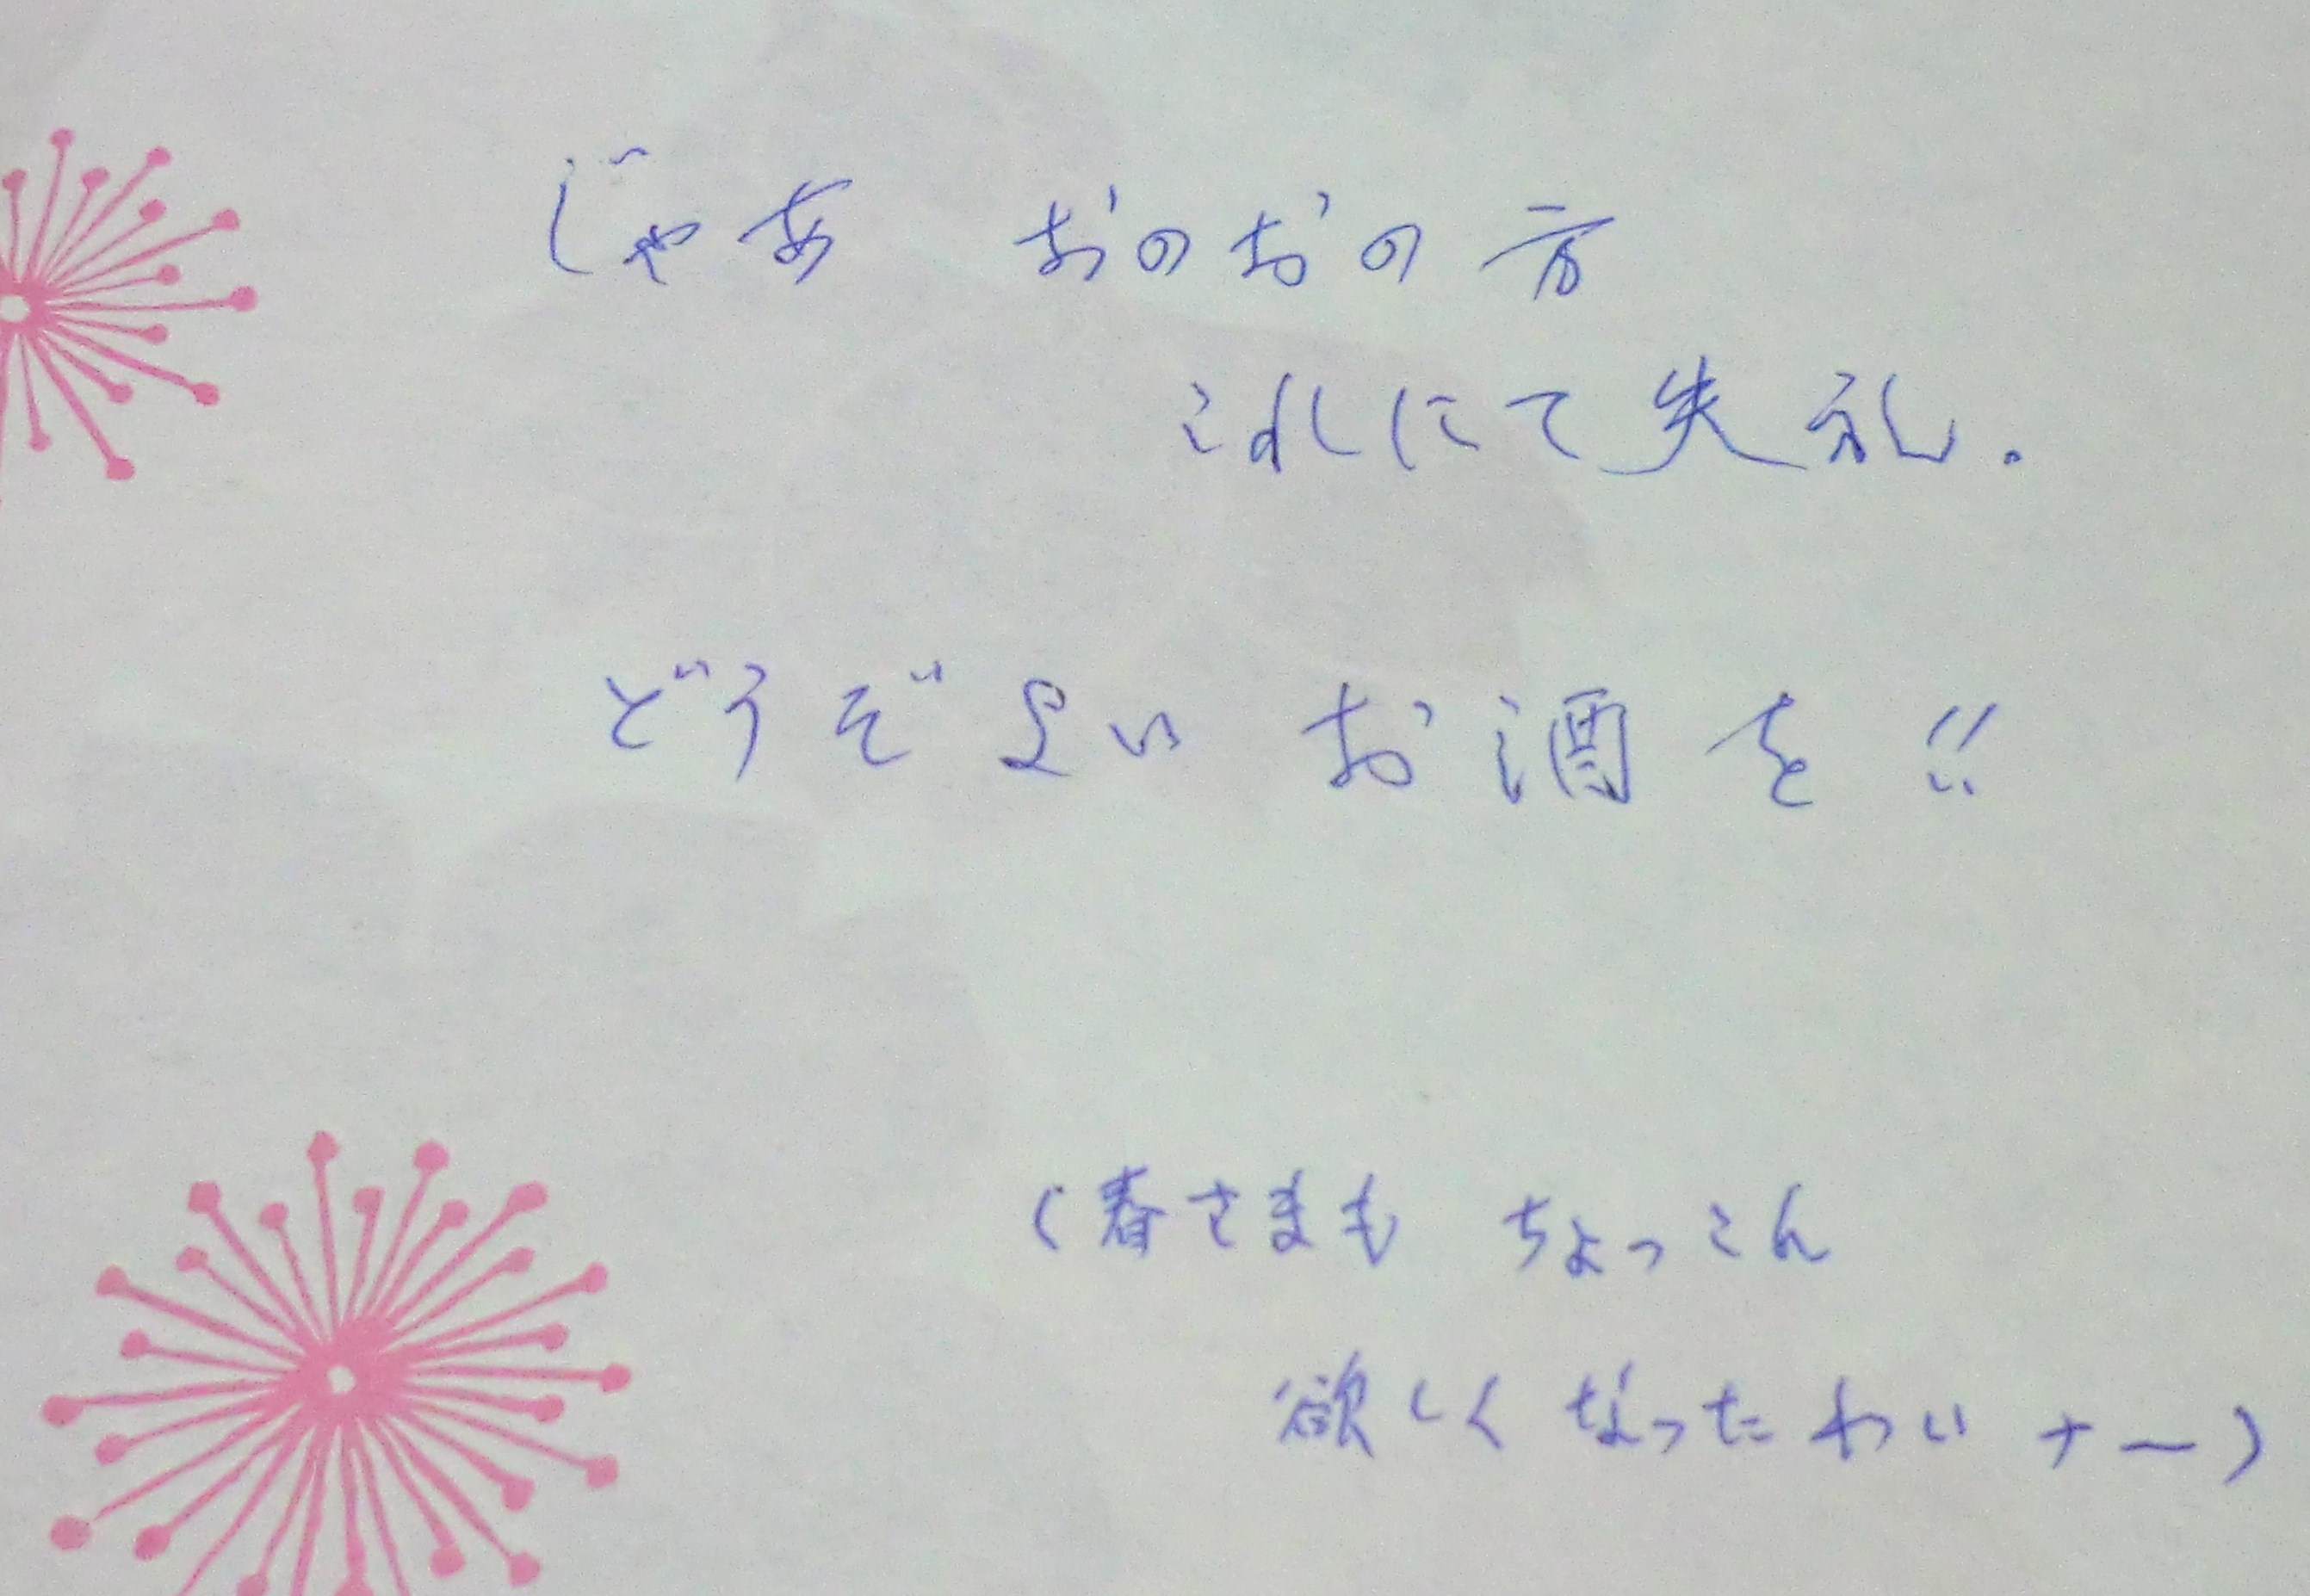 じゃあ おのおの方
これにて失礼.
どうぞよい お酒を!!
(春さまも ちょっこん
欲しく なったわいナー)